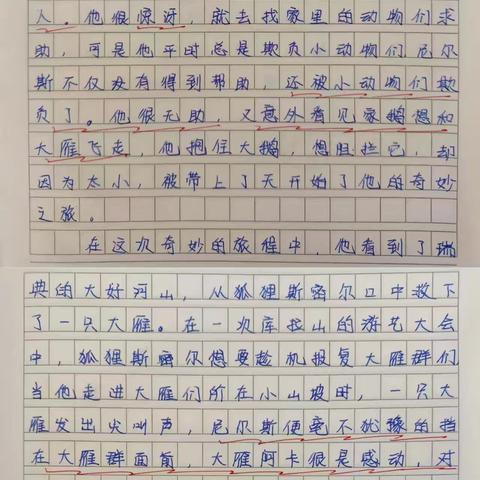 人。他很惊讶，就去找家里的动物们求
助，可是他平时总是欺负小动物们尼尔
斯不仅没有得到帮助，还被小动物们欺
负了。他很无助，又意外看见家鹅想和
大雁飞走，他抱住大鹅，想阻拦它，却
因为太小，被带上了天开始了他的奇妙
之旅。
在这次奇妙的旅程中，他看到了瑞
典的大好河山，从狐狸斯密尔口中救下
了一只大雁。在一次库拉山的游艺大会
中，狐狸斯密尔想要趁机报复大雁群们
当他走进大雁们所在小山坡时，一只大
雁发出尖叫声，尼尔斯便毫不犹豫的挡
在大雁群面前，大雁阿卡很是感动，对